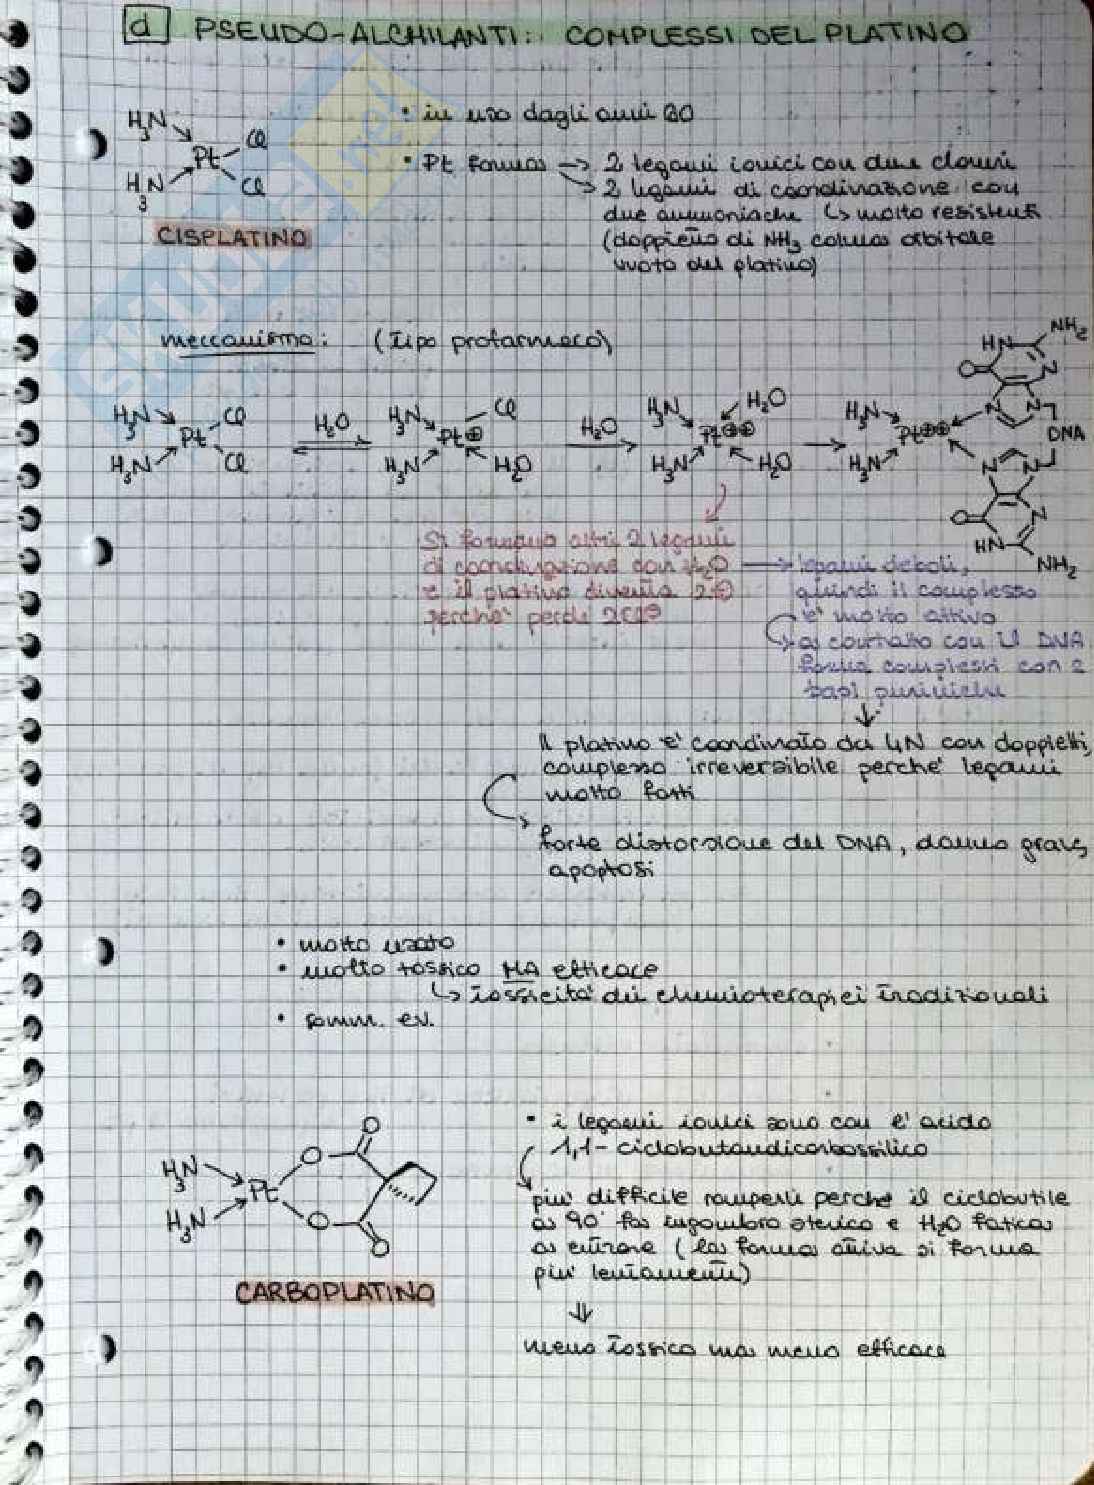 d PSEUDO-ALCHILANTI: COMPLESSI DEL PLATINO
H₃N Cl
Pt
H₃N Cl
CISPLATINO
• in uso dagli anni 80
• Pt forma → 2 legami ionici con due cloruri
→ 2 legami di coordinazione con
due ammoniache ↳ molto resistenti
(doppietto di NH₃ colma orbitale
vuoto del platino)
meccanismo: (tipo profarmaco)
H₃N Pt Cl Cl H₃N
H₂O
H₃N Pt⊕ Cl H₂O H₃N
H₂O
H₃N Pt⊕⊕ H₂O H₂O H₃N
H₃N Pt⊕⊕ H₃N
HN NH₂ O N N N DNA
N N O N HN NH₂
Si formano altri 2 legami
di coordinazione con H₂O → legami deboli,
e il platino diventa 2⊕ quindi il complesso
perché perde 2Cl⊖ è molto attivo
↳ a contatto con il DNA
forma complessi con 2
basi puriniche
↓
Il platino è coordinato da 4N con doppietti,
complesso irreversibile perché legami
molto forti
forte distorsione del DNA, danno grave,
apoptosi
• molto usato
• molto tossico MA efficace
↳ tossicità dei chemioterapici tradizionali
• somm. ev.
H₃N Pt O O
H₃N O O
CARBOPLATINO
• i legami ionici sono con l'acido
1,1-ciclobutandicarbossilico
più difficile romperli perché il ciclobutile
a 90° fa ingombro sterico e H₂O fatica
a entrare (la forma attiva si forma
più lentamente)
⇓
meno tossico ma meno efficace
SKUOLA.net